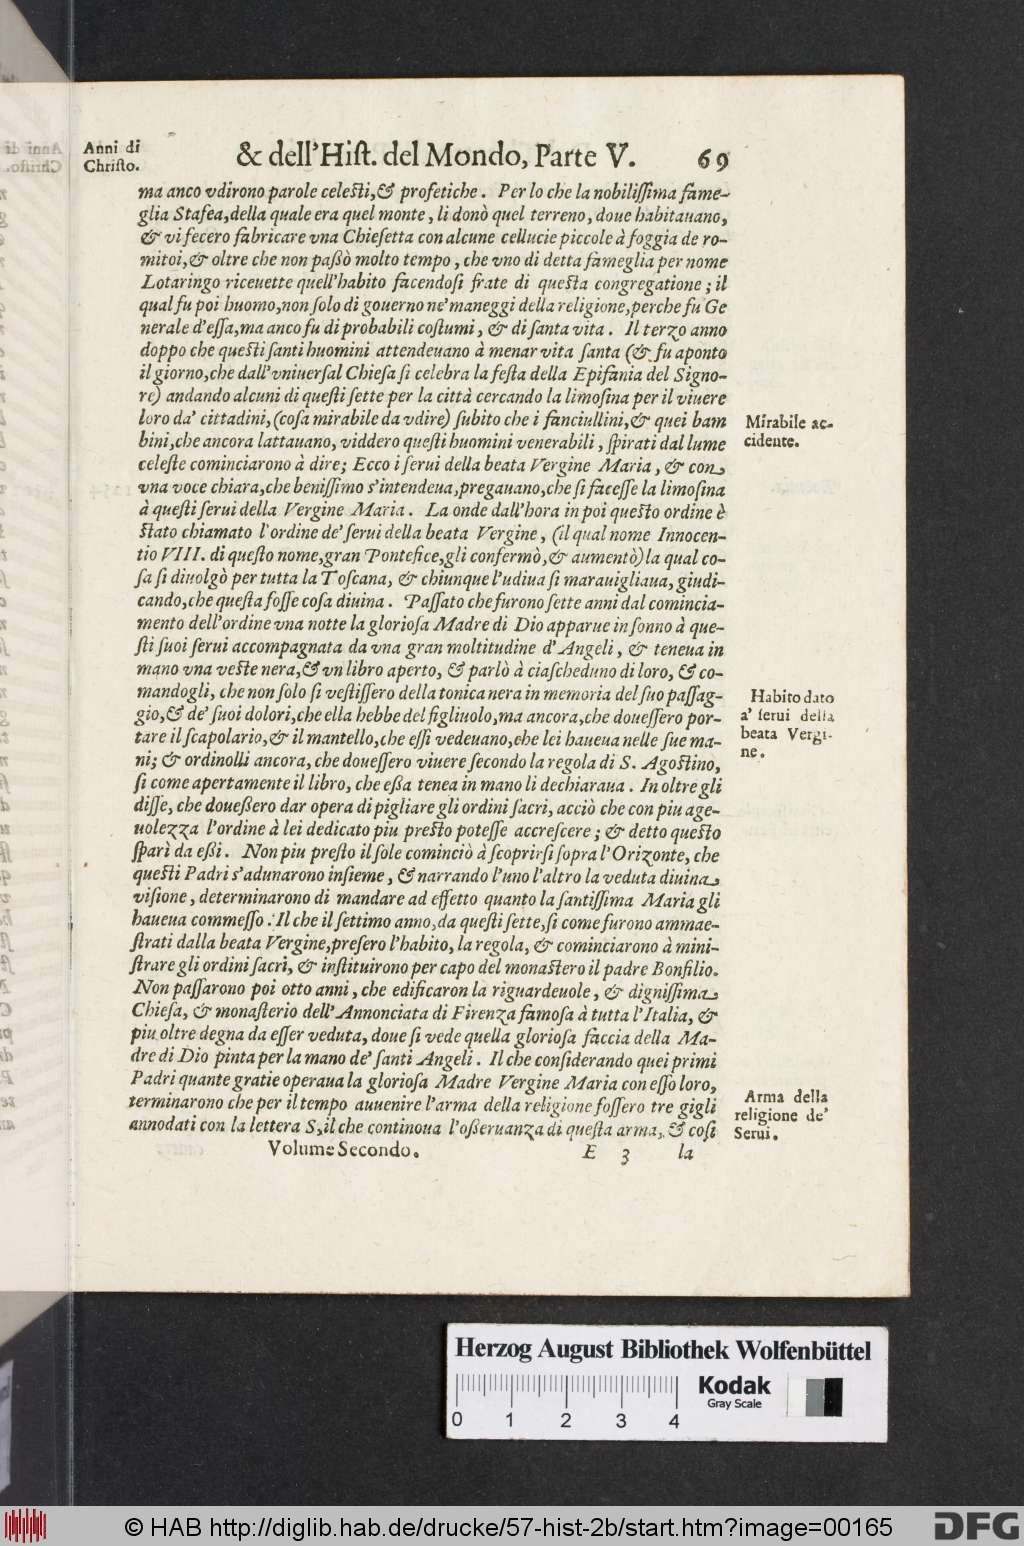 Anni di
Christo.
& dell'Hist. del Mondo, Parte V. 69
ma anco vdirono parole celesti, & profetiche. Per lo che la nobilissima fame-
glia Stafea, della quale era quel monte, li donò quel terreno, doue habitauano,
& vi fecero fabricare vna Chiesetta con alcune cellucie piccole à foggia de ro-
mitoi, & oltre che non passò molto tempo, che vno di detta fameglia per nome
Lotaringo riceuette quell'habito facendosi frate di questa congregatione; il
qual fu poi huomo, non solo di gouerno ne' maneggi della religione, perche fu Ge
nerale d'essa, ma anco fu di probabili costumi, & di santa vita. Il terzo anno
doppo che questi santi huomini attendeuano à menar vita santa (& fu aponto
il giorno, che dall'vniuersal Chiesa si celebra la festa della Epifania del Signo-
re) andando alcuni di questi sette per la città cercando la limosina per il viuere
loro da' cittadini, (cosa mirabile da vdire) subito che i fanciullini, & quei bam
bini, che ancora lattauano, viddero questi huomini venerabili, spirati dal lume
celeste cominciarono à dire; Ecco i serui della beata Vergine Maria, & con
vna voce chiara, che benissimo s'intendeua, pregauano, che si facesse la limosina
à questi serui della Vergine Maria. La onde dall'hora in poi questo ordine è
stato chiamato l'ordine de' serui della beata Vergine, (il qual nome Innocen-
tio VIII. di questo nome, gran Pontefice, gli confermò, & aumentò) la qual co-
sa si diuolgò per tutta la Toscana, & chiunque l'udiua si marauigliaua, giudi-
cando, che questa fosse cosa diuina. Passato che furono sette anni dal comincia-
mento dell'ordine vna notte la gloriosa Madre di Dio apparue in sonno à que-
sti suoi serui accompagnata da vna gran moltitudine d'Angeli, & teneua in
mano vna veste nera, & vn libro aperto, & parlò à ciascheduno di loro, & co-
mandogli, che non solo si vestissero della tonica nera in memoria del suo passag-
gio, & de' suoi dolori, che ella hebbe del figliuolo, ma ancora, che douessero por-
tare il scapolario, & il mantello, che essi vedeuano, che lei haueua nelle sue ma-
ni; & ordinolli ancora, che douessero viuere secondo la regola di S. Agostino,
si come apertamente il libro, che essa tenea in mano li dechiaraua. In oltre gli
disse, che douessero dar opera di pigliare gli ordini sacri, acciò che con piu age-
uolezza l'ordine à lei dedicato piu presto potesse accrescere; & detto questo
sparì da essi. Non piu presto il sole cominciò à scoprirsi sopra l'Orizonte, che
questi Padri s'adunarono insieme, & narrando l'uno l'altro la veduta diuina
visione, determinarono di mandare ad effetto quanto la santissima Maria gli
haueua commesso. Il che il settimo anno, da questi sette, si come furono ammae-
strati dalla beata Vergine, presero l'habito, la regola, & cominciarono à mini-
strare gli ordini sacri, & instituirono per capo del monastero il padre Bonfilio.
Non passarono poi otto anni, che edificaron la riguardeuole, & dignissima
Chiesa, & monasterio dell'Annonciata di Firenza famosa à tutta l'Italia, &
piu oltre degna da esser veduta, doue si vede quella gloriosa faccia della Ma-
dre di Dio pinta per la mano de' santi Angeli. Il che considerando quei primi
Padri quante gratie operaua la gloriosa Madre Vergine Maria con esso loro,
terminarono che per il tempo auuenire l'arma della religione fossero tre gigli
annodati con la lettera S, il che continoua l'osseruanza di questa arma, & cosi
Volume Secondo. E 3 la
Mirabile ac-
cidente.
Habito dato
a' serui della
beata Vergi-
ne.
Arma della
religione de'
Serui.
Herzog August Bibliothek Wolfenbüttel
Kodak
Gray Scale
0 1 2 3 4
© HAB http://diglib.hab.de/drucke/57-hist-2b/start.htm?image=00165
DFG